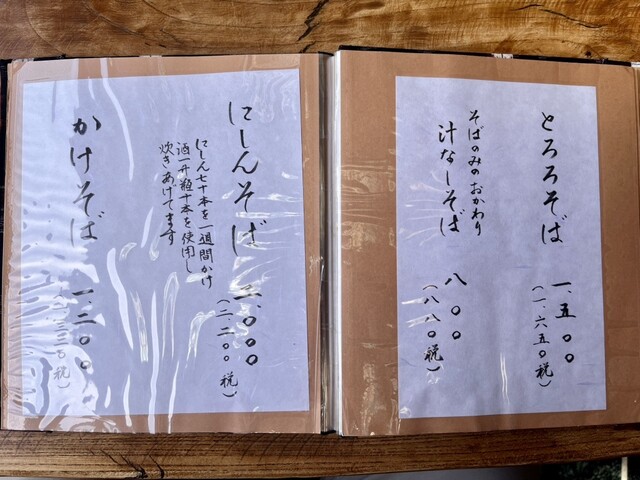 とろろそば 一、五〇〇
(一、六五〇税)
そばのみのおかわり
汁なしそば 八〇〇
(八八〇税)
にしんそば 二、〇〇〇
(二、二〇〇税)
にしん七十本を一週間かけ
酒一升瓶十本を使用し
炊きあげてます
かけそば 一、二〇〇
(一、三二〇税)